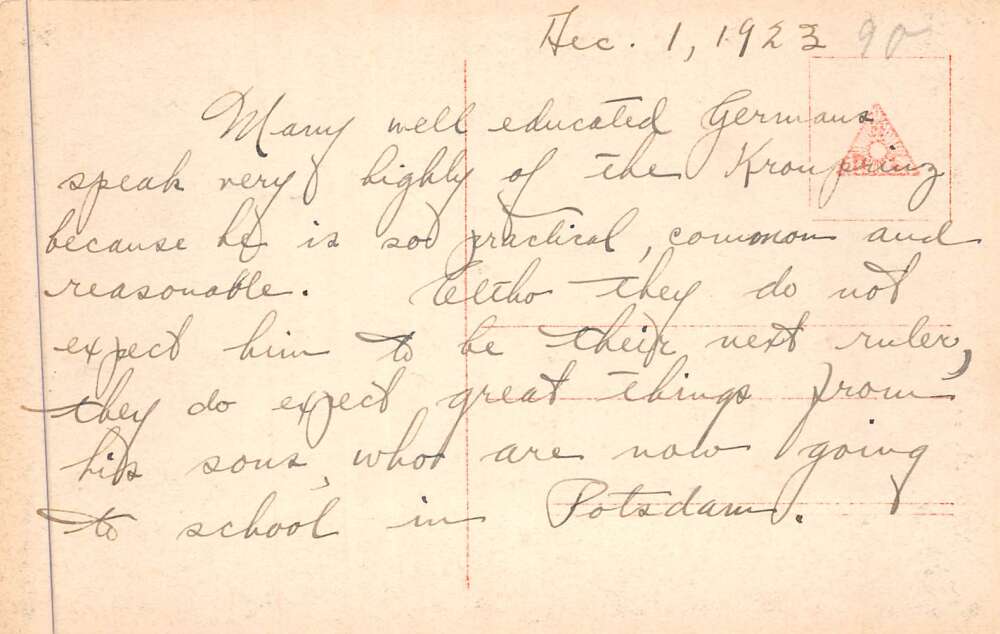 Dec. 1, 1923 90
Many well educated Germans
speak very highly of the Kronprinz
because he is so practical, common and
reasonable. Altho they do not
expect him to be their next ruler,
they do expect great things from
his sons, who are now going
to school in Potsdam.